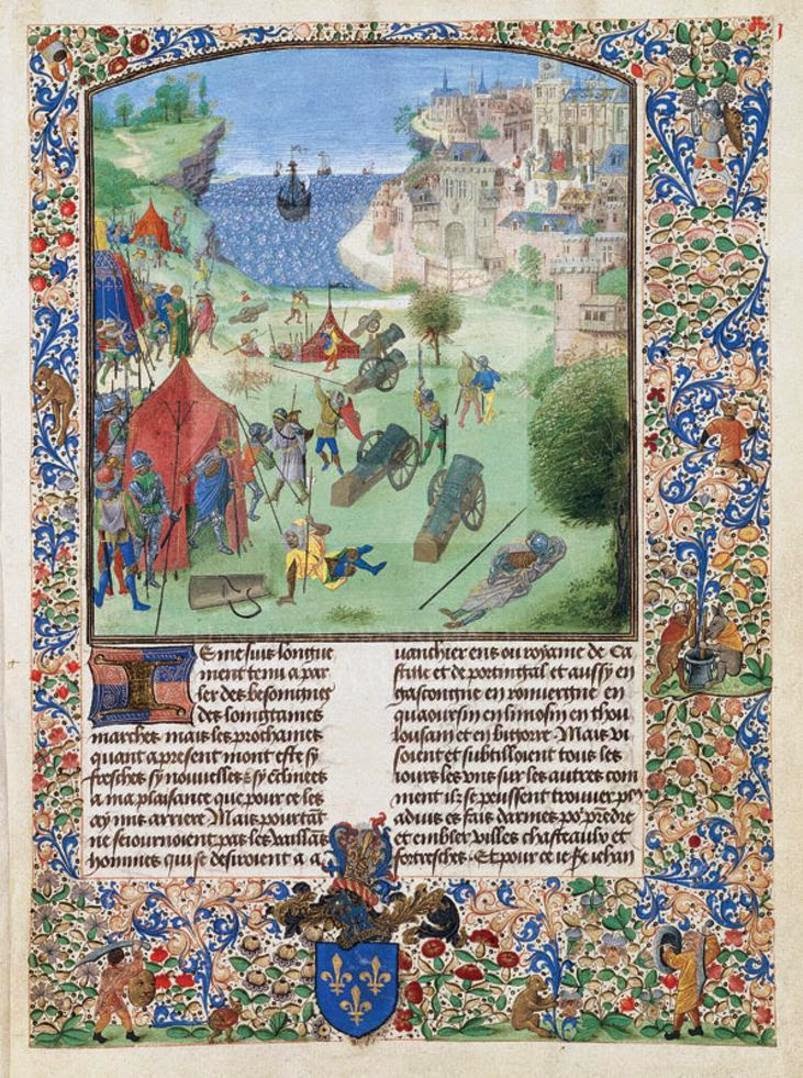 IE me suis longue
ment tenu a par
ler des besoingnes
des loingtaines
marches mais les prochaines
quant a present mont este sy
fresches sy nouvelles & sy ēclinees
a ma plaisance que pour ce les
ay mis arriere. Mais pourtāt
ne seiournoient pas les vaillās
hommes qui se desiroient a a
vanchier ens ou royaume de Ca
stille et de portingal et aussy en
gascongne en rouvergne en
quaoursin en limosin en thou
lousain et en bigorre. Mais vi
soient et subtilloient tous les
iours les vns sur les autres com
ment ilz se peussent trouver
aduis es fais darmes po' prēdre
et embler villes chasteaulx et
fortresches. Et pour ce ie Iehan